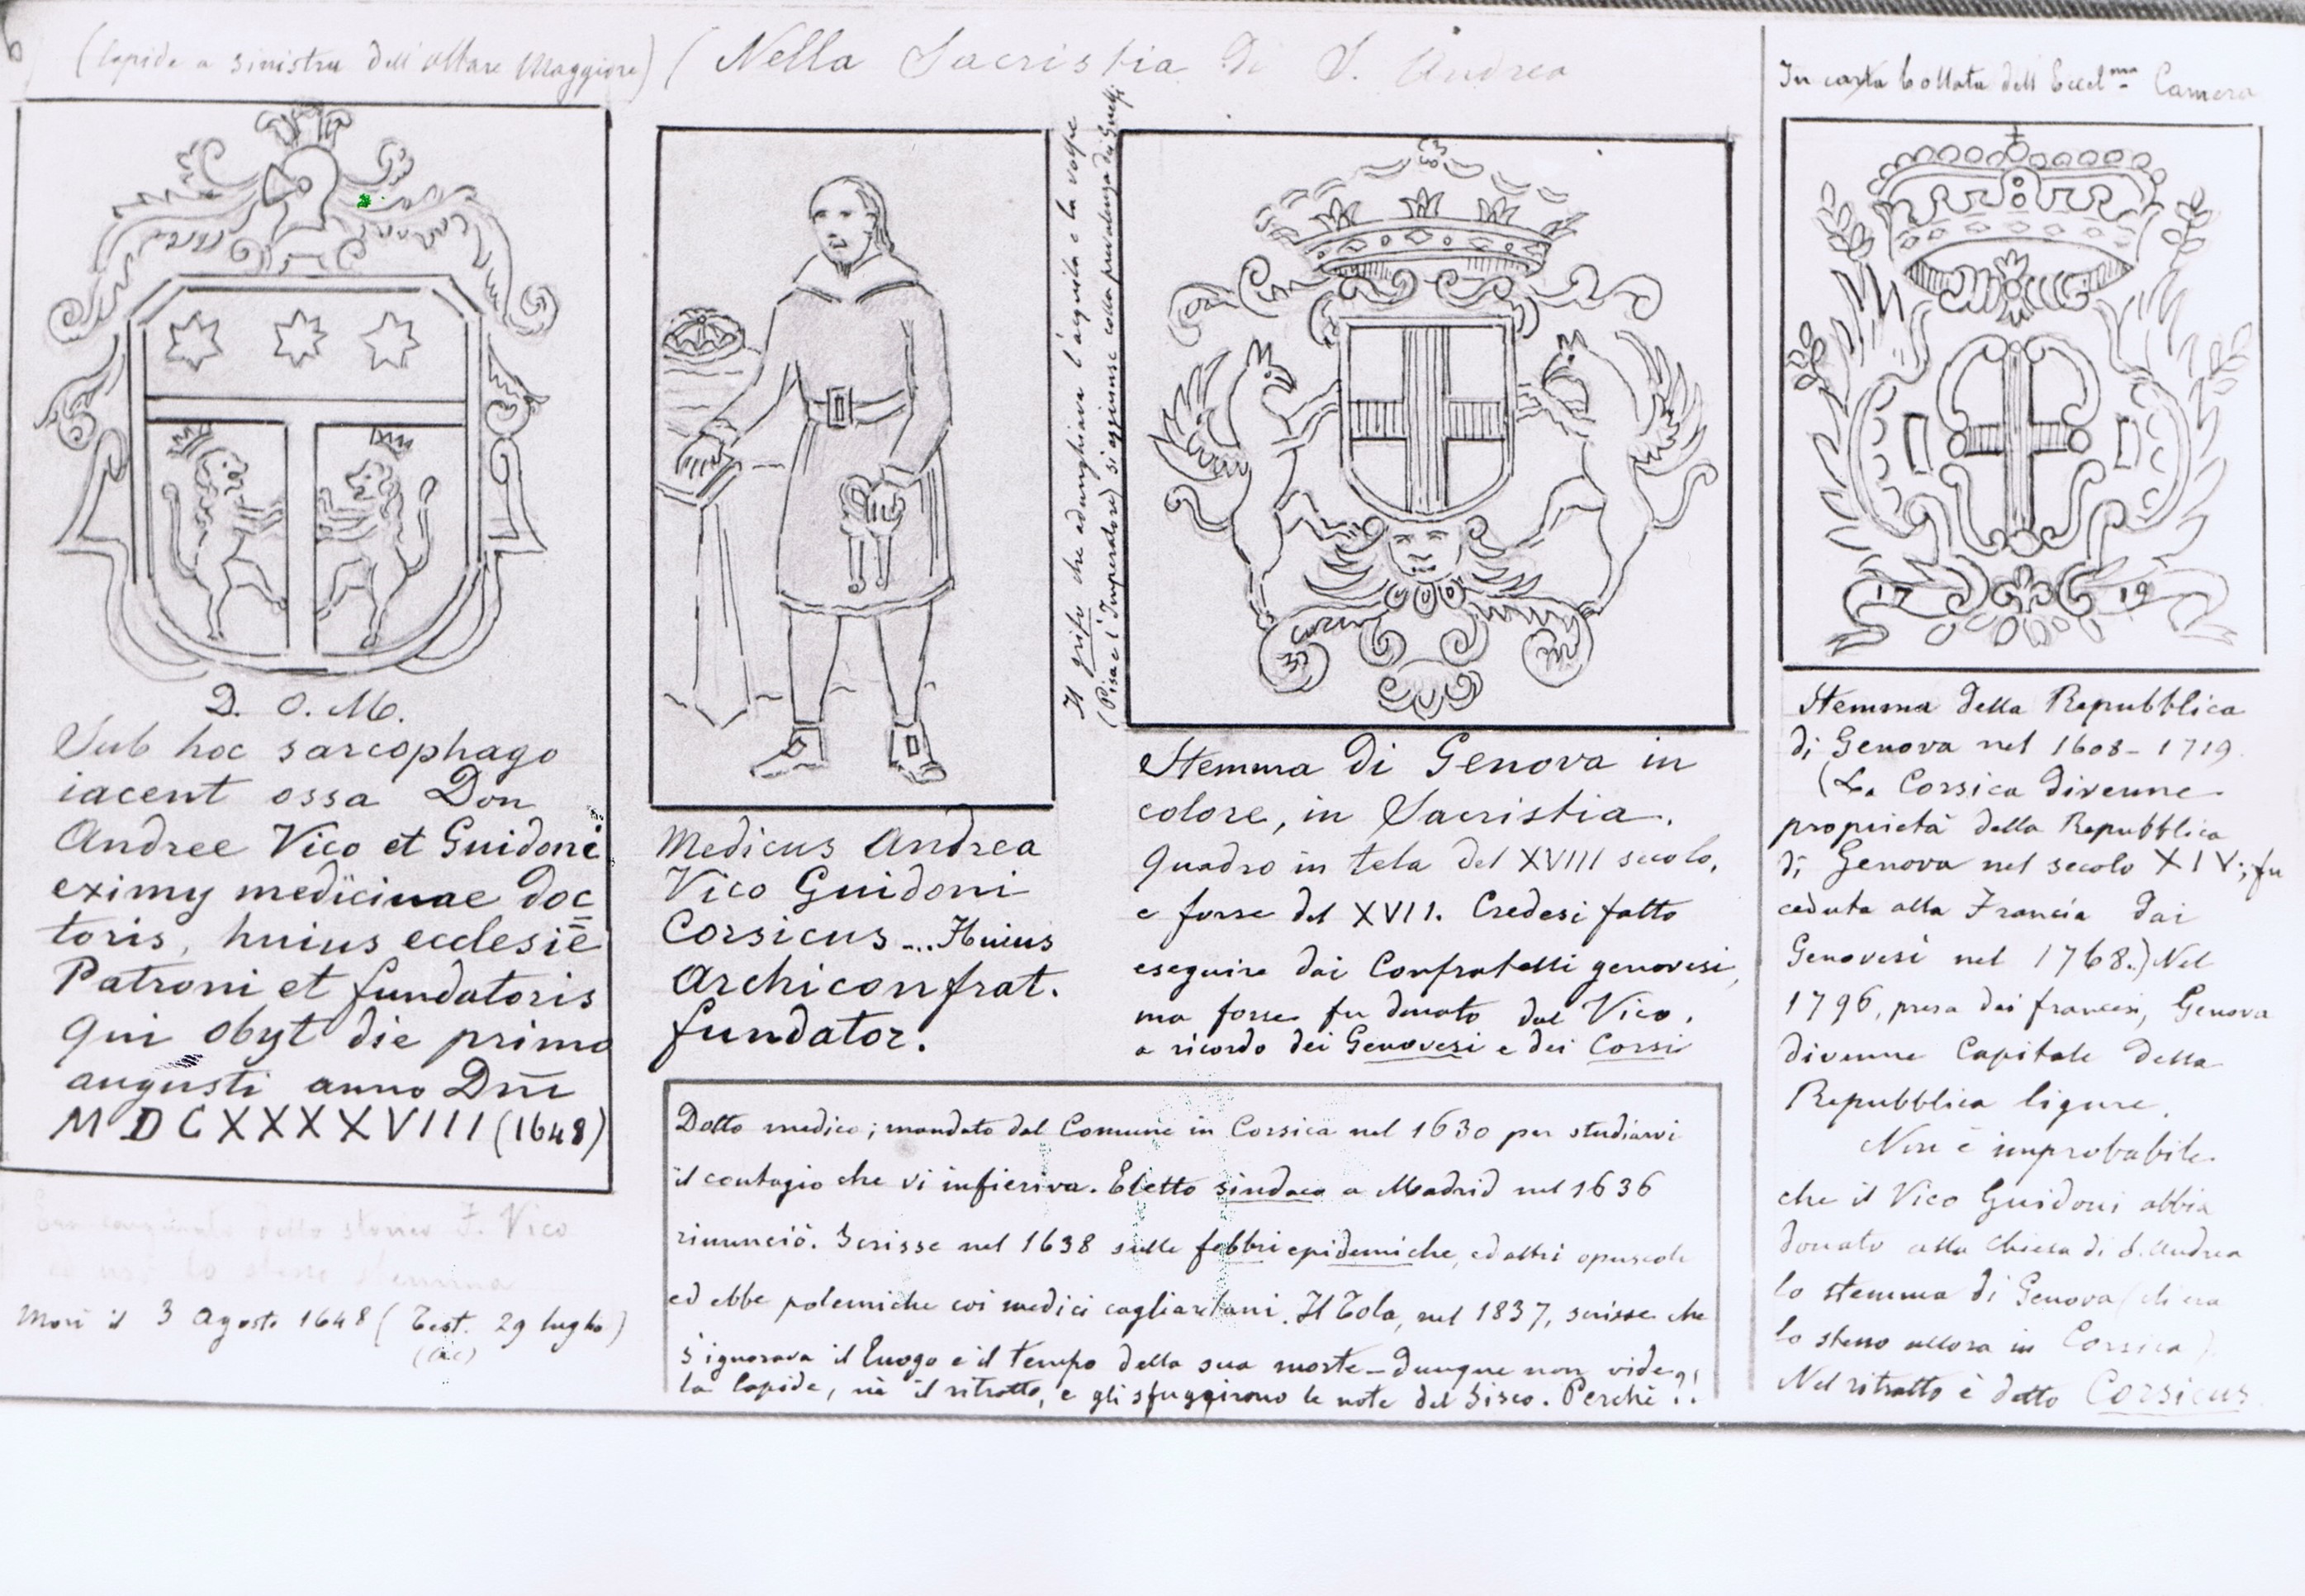 (lapide a sinistra dell'altare Maggiore)
D. O. M.
Sub hoc sarcophago
iacent ossa Don
Andree Vico et Guidoni
eximy medicinae doc
toris, huius ecclesiē
Patroni et fundatoris
qui obyt die primo
augusti anno Dm̄i
MDCXXXXVIII (1648)
dello storico F. Vico
lo stesso stemma
Morì il 3 Agosto 1648 (Test. 29 luglio)
(Nella Sacristia di S. Andrea
Medicus Andrea
Vico Guidoni
Corsicus ... Huius
Archiconfrat.
fundator.
Il grifo che adunghiava l'aquila e la volpe
(Pisa e l'Imperatore) si aggiunse colla prevalenza dei Guelfi
Stemma di Genova in
colore, in Sacristia.
Quadro in tela del XVIII secolo,
e forse del XVII. Credesi fatto
eseguire dai Confratelli genovesi,
ma forse fu donato dal Vico,
a ricordo dei Genovesi e dei Corsi
Dotto medico; mandato dal Comune in Corsica nel 1630 per studiarvi
il contagio che vi infieriva. Eletto sindaco a Madrid nel 1636
rinunciò. Scrisse nel 1638 sulle febbri epidemiche, ed altri opuscoli
ed ebbe polemiche coi medici cagliaritani. Il Tola, nel 1837, scrisse che
s'ignorava il luogo e il tempo della sua morte – Dunque non vide
la lapide, nè il ritratto, e gli sfuggirono le note del Sisco. Perchè?!
In carta bollata dell'Eccel.ma Camera
17 19
Stemma della Repubblica
di Genova nel 1608 – 1719.
(La Corsica divenne
proprietà della Repubblica
di Genova nel secolo XIV; fu
ceduta alla Francia dai
Genovesi nel 1768.) Nel
1796, presa dai francesi, Genova
divenne Capitale della
Repubblica ligure.
Non è improbabile
che il Vico Guidoni abbia
donato alla chiesa di S. Andrea
lo stemma di Genova (ch'era
lo stesso allora in Corsica).
Nel ritratto è detto Corsicus